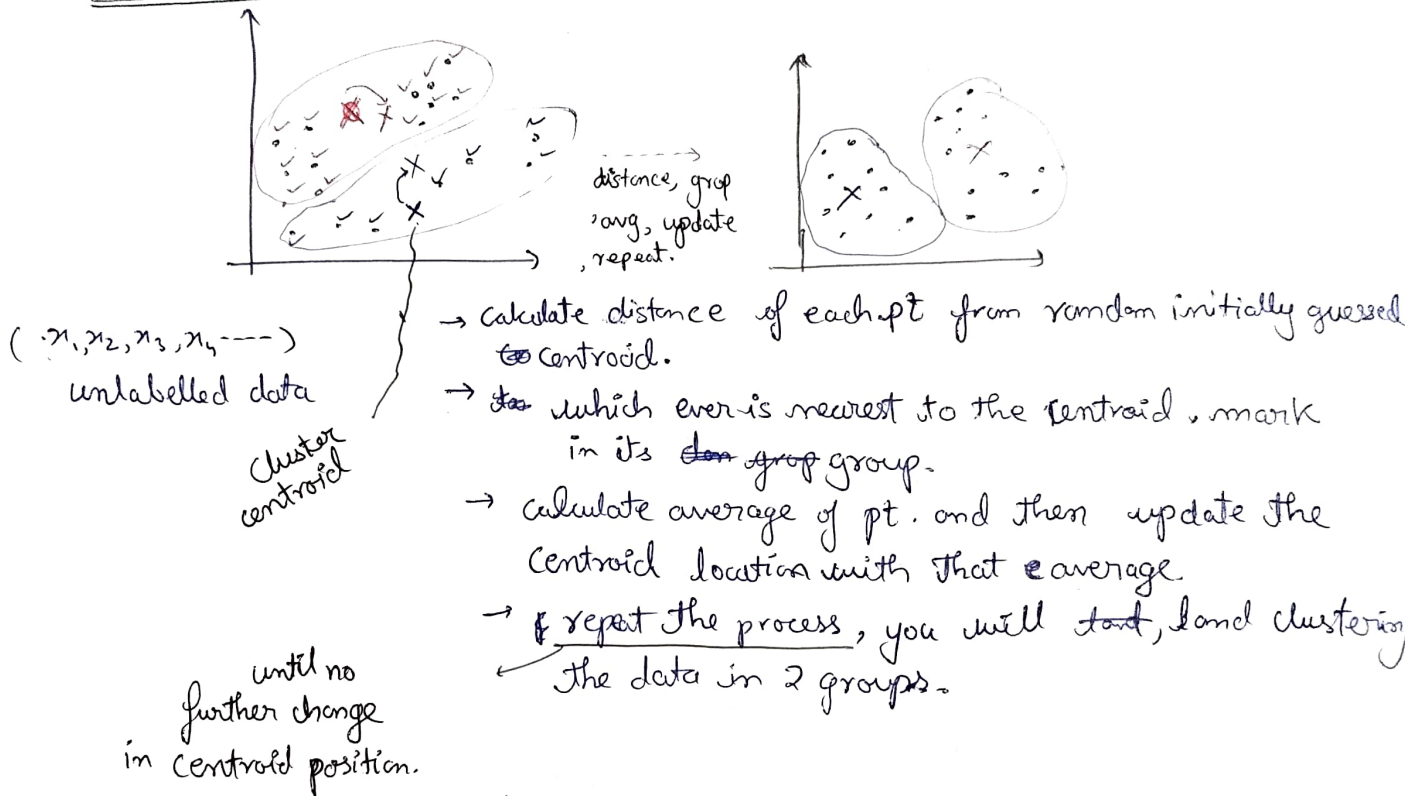 distance, grop
, avg, update
, repeat.
(x₁, x₂, x₃, x₄ ----)
unlabelled data
cluster
centroid
→ calculate distance of each pt from random initially guessed
centrooid.
→ which ever is nearest to the centroid, mark
in its group.
→ calculate average of pt. and then update the
centroid location with that average
→ repeat the process, you will land clustering
the data in 2 groups.
until no
further change
in centroid position.